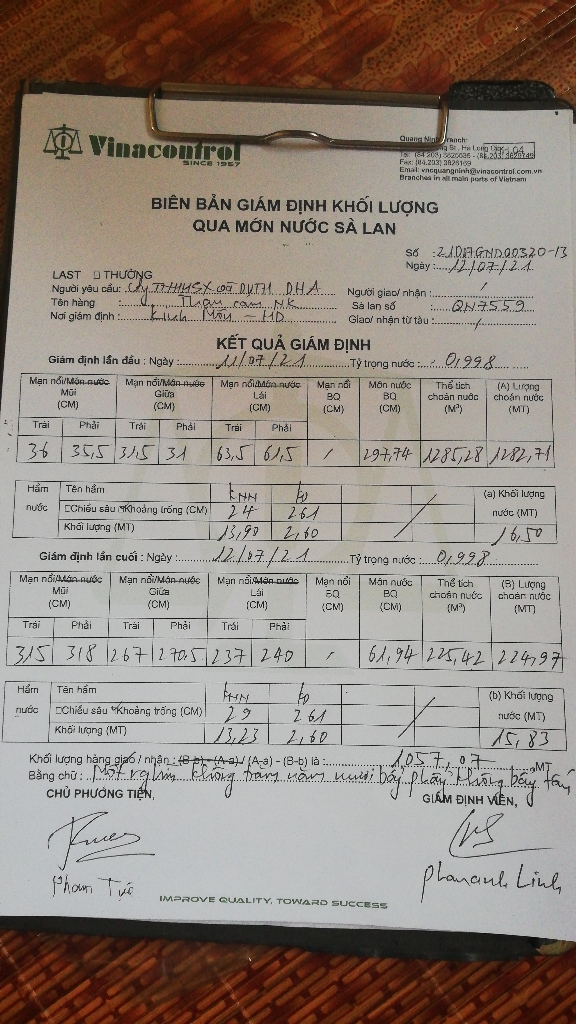 Vinacontrol
SINCE 1957
Quang Ninh Branch:
St., Ha Long
Tel: (84.203) 3825636 -
Fax: (84.203) 3826169
Email: vncquangninh@vinacontrol.com.vn
Branches in all main ports of Vietnam
BIÊN BẢN GIÁM ĐỊNH KHỐI LƯỢNG
QUA MỚN NƯỚC SÀ LAN
Số : 21D17GND00320-13
Ngày : 12/07/21
LAST □ THƯỜNG
Người yêu cầu: Cty TNHHSX DVTM DHA Người giao/ nhận : /
Tên hàng : Than cám NK Sà lan số : QN7559
Nơi giám định : Kinh Môn - HD Giao/ nhận từ tàu : /
KẾT QUẢ GIÁM ĐỊNH
Giám định lần đầu : Ngày : 11/07/21 Tỷ trọng nước : 0,998
Mạn nổi/Mớn nước Mũi (CM) Mạn nổi/Mớn nước Giữa (CM) Mạn nổi/Mớn nước Lái (CM) Mạn nổi BQ (CM) Mớn nước BQ (CM) Thể tích choán nước (M³) (A) Lượng choán nước (MT)
Trái Phải Trái Phải Trái Phải
36 35,5 31,5 31 63,5 61,5 / 297,74 1285,28 1282,71
Hầm nước Tên hầm KNN (a) Khối lượng nước (MT)
□Chiều sâu Khoảng trống (CM) 24 261
Khối lượng (MT) 13,90 2,60 16,50
Giám định lần cuối : Ngày : 12/07/21 Tỷ trọng nước : 0,998
Mạn nổi/Mớn nước Mũi (CM) Mạn nổi/Mớn nước Giữa (CM) Mạn nổi/Mớn nước Lái (CM) Mạn nổi BQ (CM) Mớn nước BQ (CM) Thể tích choán nước (M³) (B) Lượng choán nước (MT)
Trái Phải Trái Phải Trái Phải
315 318 267 270,5 237 240 / 61,94 225,42 224,97
Hầm nước Tên hầm KNN (b) Khối lượng nước (MT)
□Chiều sâu Khoảng trống (CM) 29 261
Khối lượng (MT) 13,23 2,60 15,83
Khối lượng hàng giao / nhận : (B-b) - (A-a) / (A-a) - (B-b) là : 1.057,07 MT
Bằng chữ : Một nghìn không trăm năm mươi bảy phẩy không bảy tấn
CHỦ PHƯƠNG TIỆN, GIÁM ĐỊNH VIÊN,
Phạm Phan anh Linh
IMPROVE QUALITY, TOWARD SUCCESS